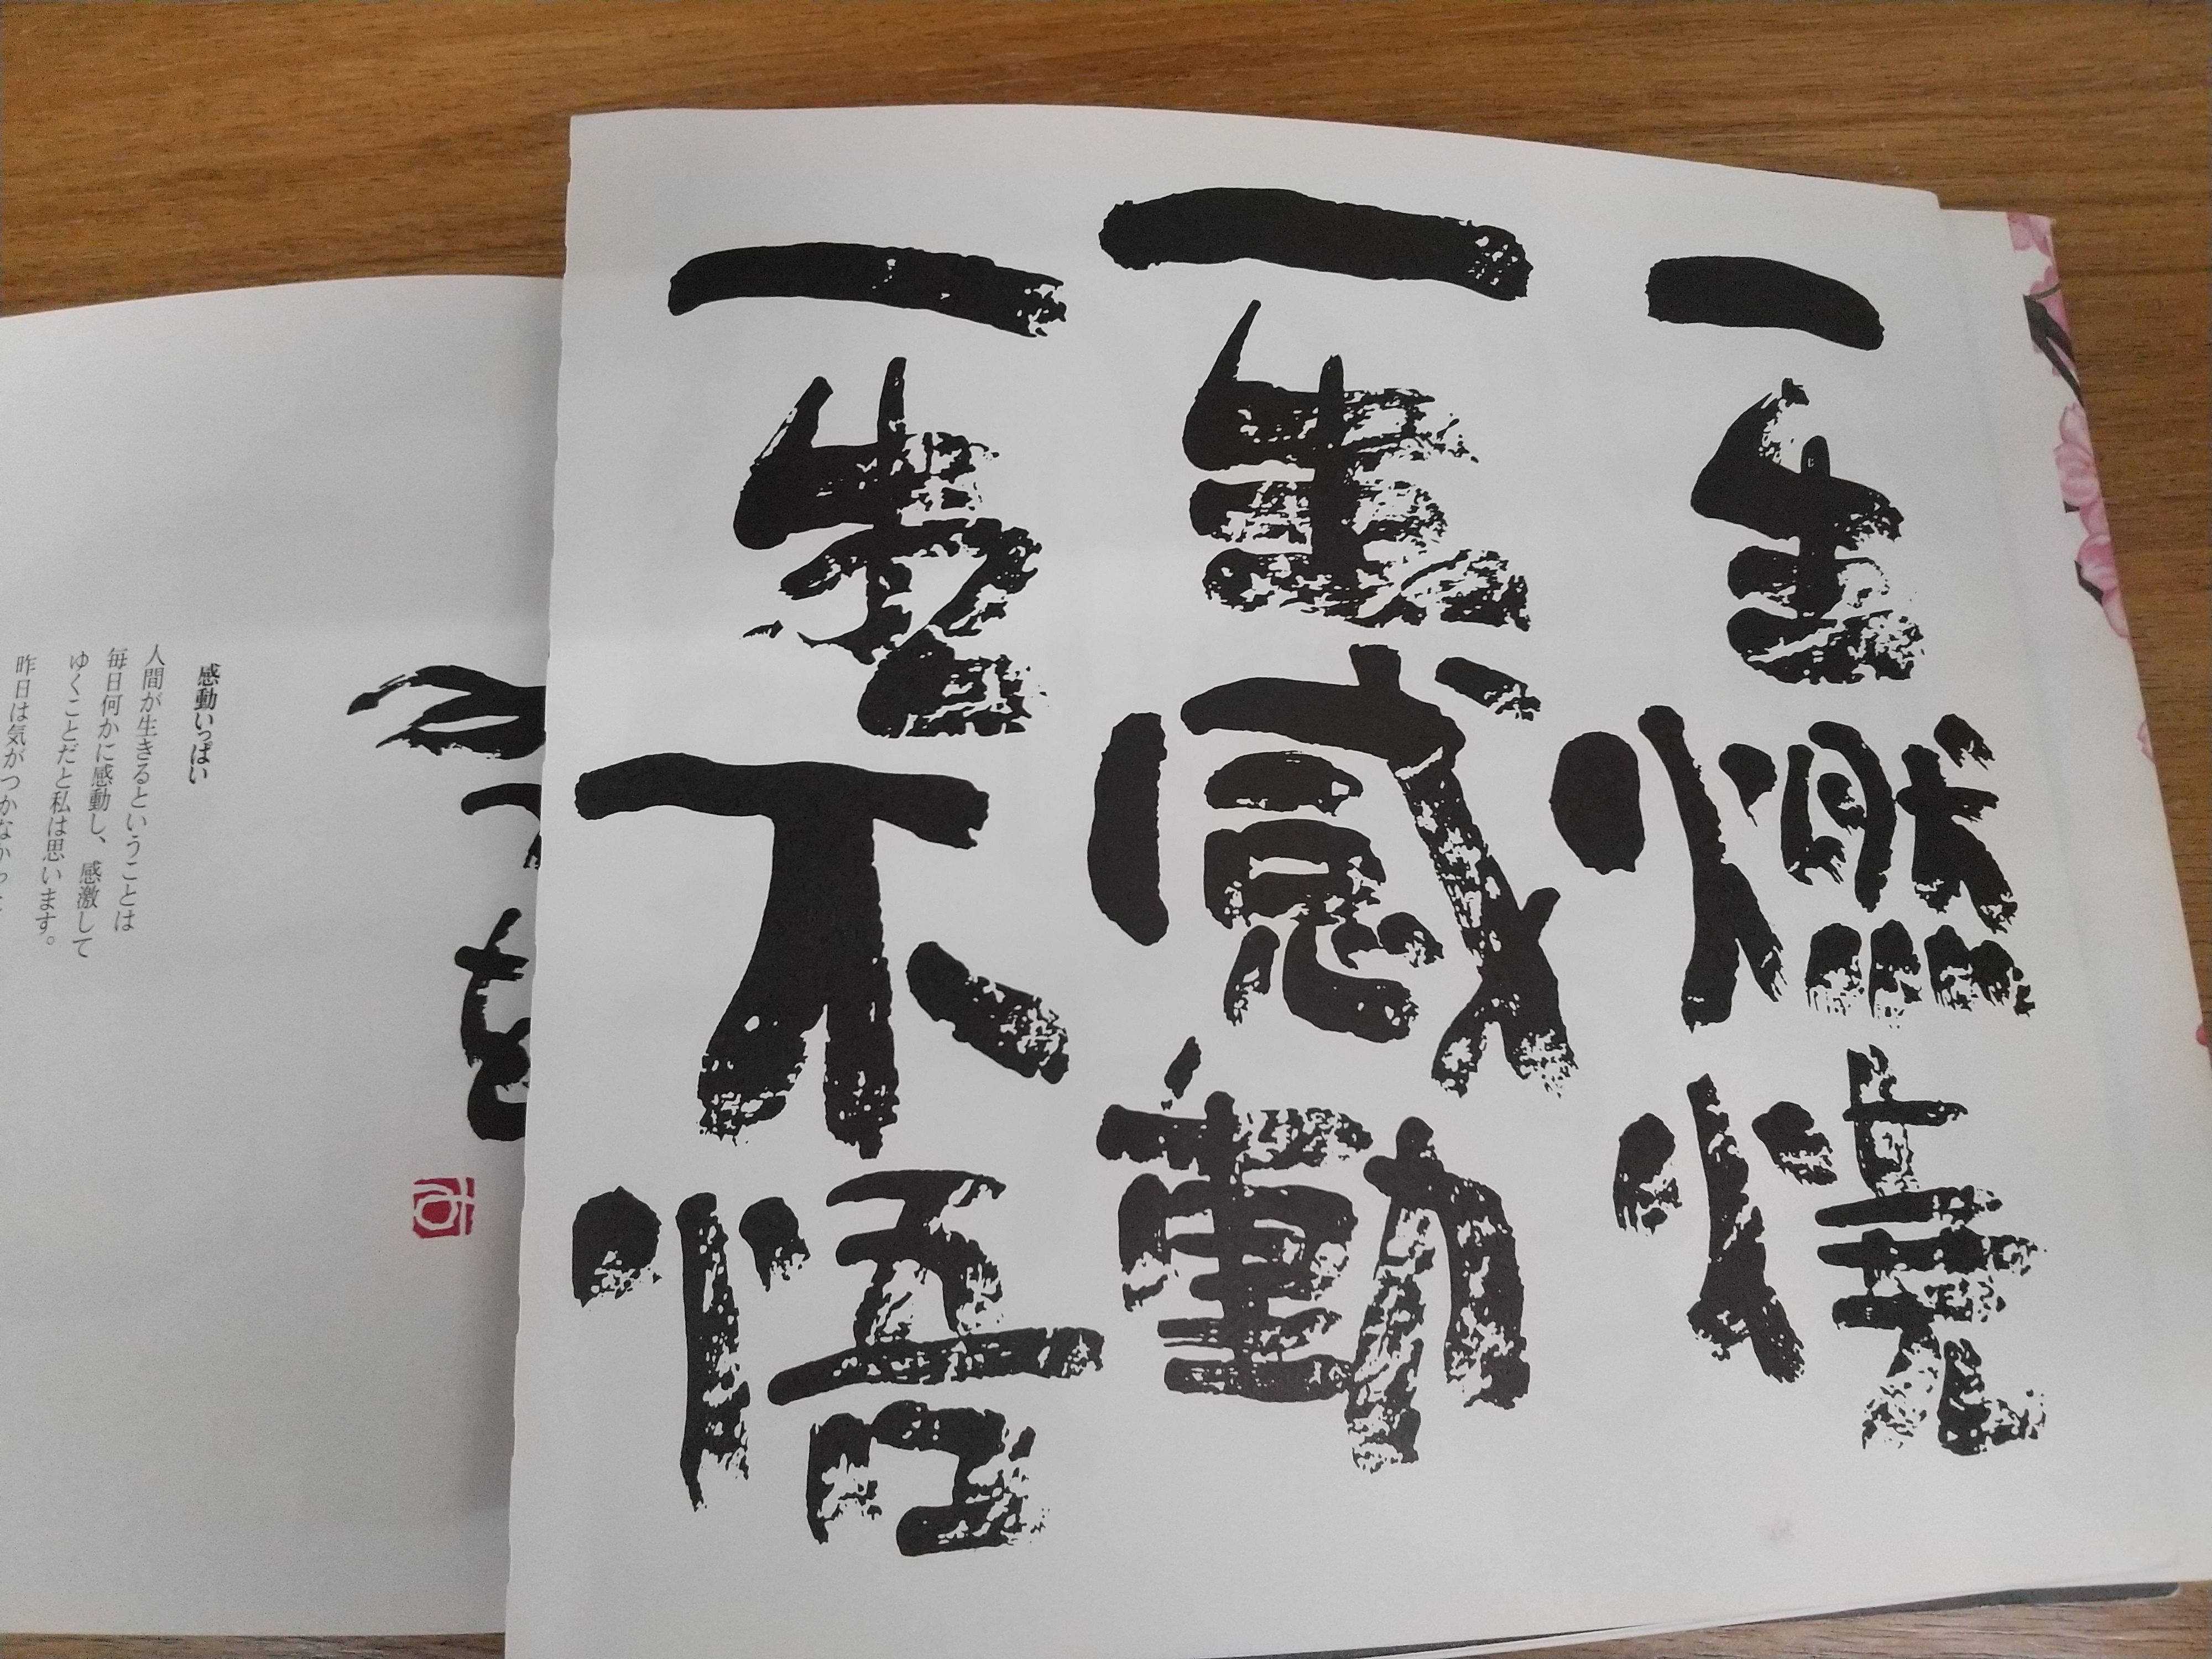 一生燃焼
一生感動
一生不悟
を
感動いっぱい
人間が生きるということは
毎日何かに感動し、感激して
ゆくことだと私は思います。
昨日は気がつかなかっ